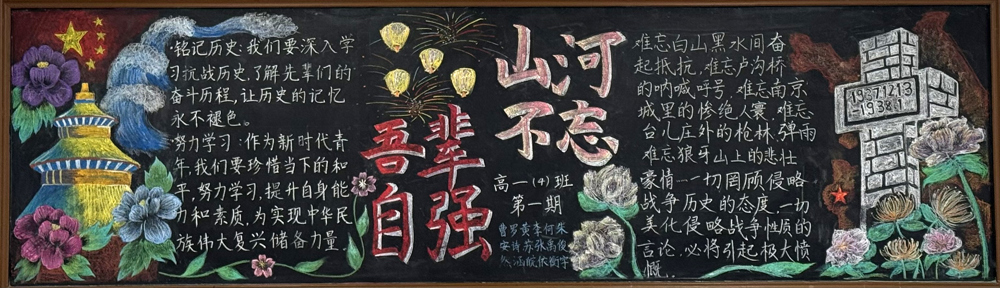 ·铭记历史:我们要深入学
习抗战历史,了解先辈们的
奋斗历程,让历史的记忆
永不褪色。
努力学习:作为新时代青
年,我们要珍惜当下的和
平,努力学习,提升自身能
力和素质,为实现中华民
族伟大复兴储备力量.
吾辈
自强
山河
不忘
高一(4)班
第一期
曹罗黄李何朱
难忘白山黑水间奋
起抵抗,难忘卢沟桥
的呐喊呼号,难忘南京
城里的惨绝人寰,难忘
台儿庄外的枪林弹雨
难忘狼牙山上的悲壮
豪情…一切罔顾侵略
战争历史的态度,一切
美化侵略战争性质的
言论,必将引起极大愤
慨..
19371213
1938.1